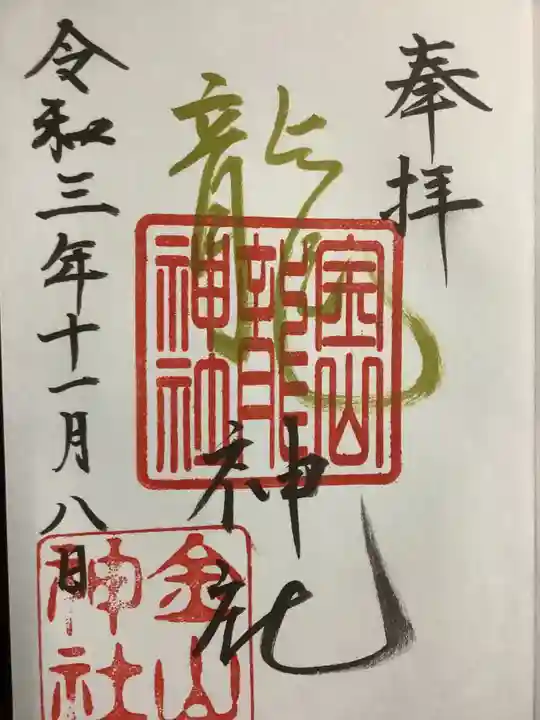 奉拝
龍神社
宝山
龍
神社
令和三年十一月八日
金山
神社